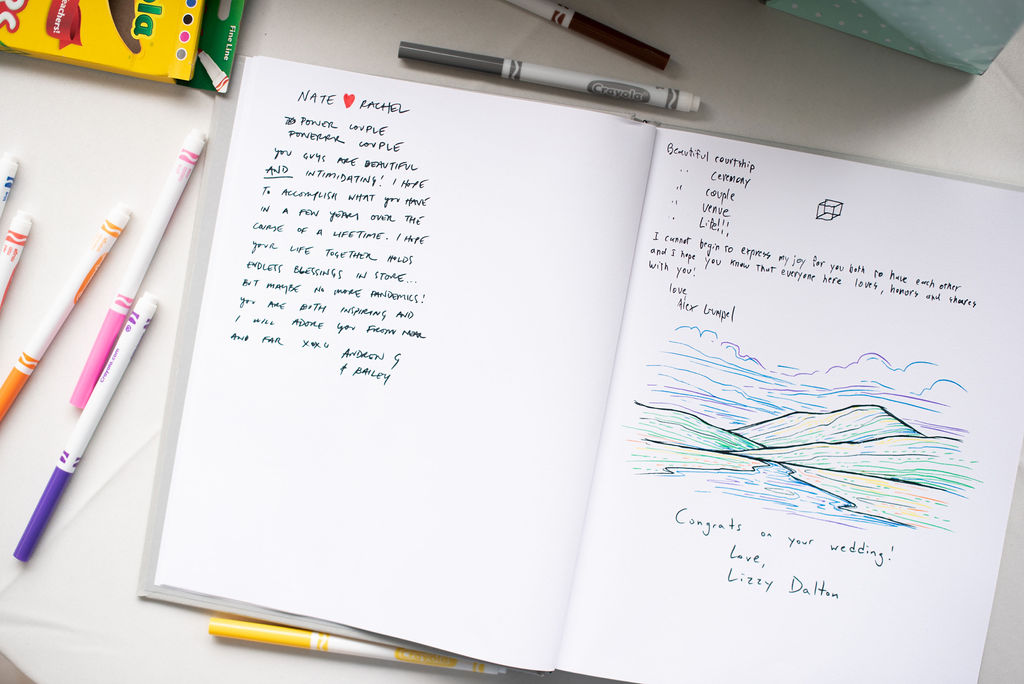 Teachers!
ola
Fine Line
Crayola
Crayola.com
NATE ♥ RACHEL
POWER COUPLE
POWERRR COUPLE
YOU GUYS ARE BEAUTIFUL
AND INTIMIDATING! I HOPE
TO ACCOMPLISH WHAT YOU HAVE
IN A FEW YEARS OVER THE
COURSE OF A LIFETIME. I HOPE
YOUR LIFE TOGETHER HOLDS
ENDLESS BLESSINGS IN STORE...
BUT MAYBE NO MORE PANDEMICS!
YOU ARE BOTH INSPIRING AND
I WILL ADORE YOU FROM NEAR
AND FAR XOXO
ANDREW G
& BAILEY
Beautiful courtship
" ceremony
" couple
" venue
" Life!!!
I cannot begin to express my joy for you both to have each other
and I hope you know that everyone here loves, honors and shares
with you!
love
Alex
Congrats on your wedding!
Love,
Lizzy Dalton
Crayola